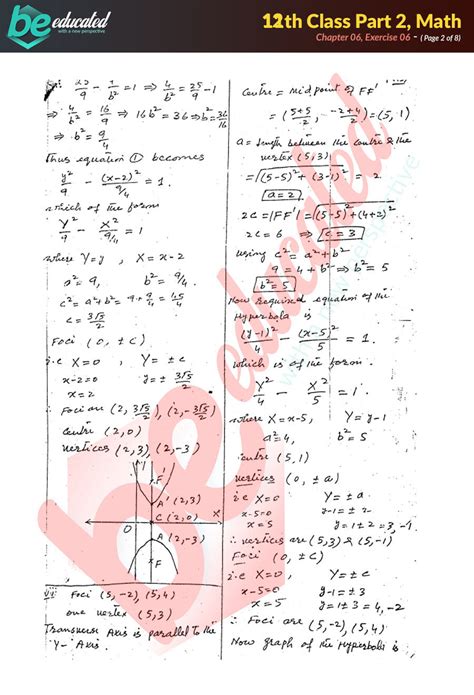 be educated
with a new perspective
12th Class Part 2, Math
Chapter 06, Exercise 06 - ( Page 2 of 8)
25/9 - 4/b² = 1 ⇒ 4/b² = 25/9 - 1
⇒ 4/b² = 16/9 ⇒ 16b² = 36 ⇒ b² = 36/16
⇒ b² = 9/4
Thus equation ① becomes
y²/9 - (x-2)²/9/4 = 1.
which of the form
Y²/9 - X²/9/4 = 1
where Y=y , X = x-2
a² = 9, b² = 9/4
c² = a² + b² = 9 + 9/4 = 45/4
c = 3√5/2
Foci (0, ± c)
i.e X = 0 , Y = ± c
x-2=0 y = ± 3√5/2
x = 2
∴ Foci are (2, 3√5/2), (2, -3√5/2)
centre (2, 0)
vertices (2, 3), (2, -3)
Y
F'
A' (2, 3)
C (2, 0) X
O
A (2, -3)
F
Foci (5, -2), (5, 4)
one vertex (5, 3)
Transverse Axis is parallel to the
Y- Axis.
Centre = midpoint of FF'
= (5+5/2, -2+4/2) = (5, 1)
a = length between the centre & the
vertex (5, 3)
= √(5-5)² + (3-1)² = 2
a = 2.
2c = |FF'| = √(5-5)² + (4+2)²
2c = 6 ⇒ c = 3
using c² = a² + b²
9 = 4 + b² ⇒ b² = 5
b² = 5
Now Required equation of the
Hyperbola is
(y-1)²/4 - (x-5)²/5 = 1.
which is of the form.
Y²/4 - X²/5 = 1.
where X = x-5, Y = y-1
a² = 4, b² = 5
centre (5, 1)
vertices (0, ± a)
i.e X = 0 Y = ± a
x-5=0 y-1 = ± 2
x = 5 y = 1 ± 2 = 3, -1
∴ vertices are (5, 3) & (5, -1)
Foci (0, ± c)
i.e X = 0, Y = ± c
x-5=0 y-1 = ± 3
x = 5 y = 1 ± 3 = 4, -2
∴ Foci are (5, -2), (5, 4)
Now graph of the Hyperbola is